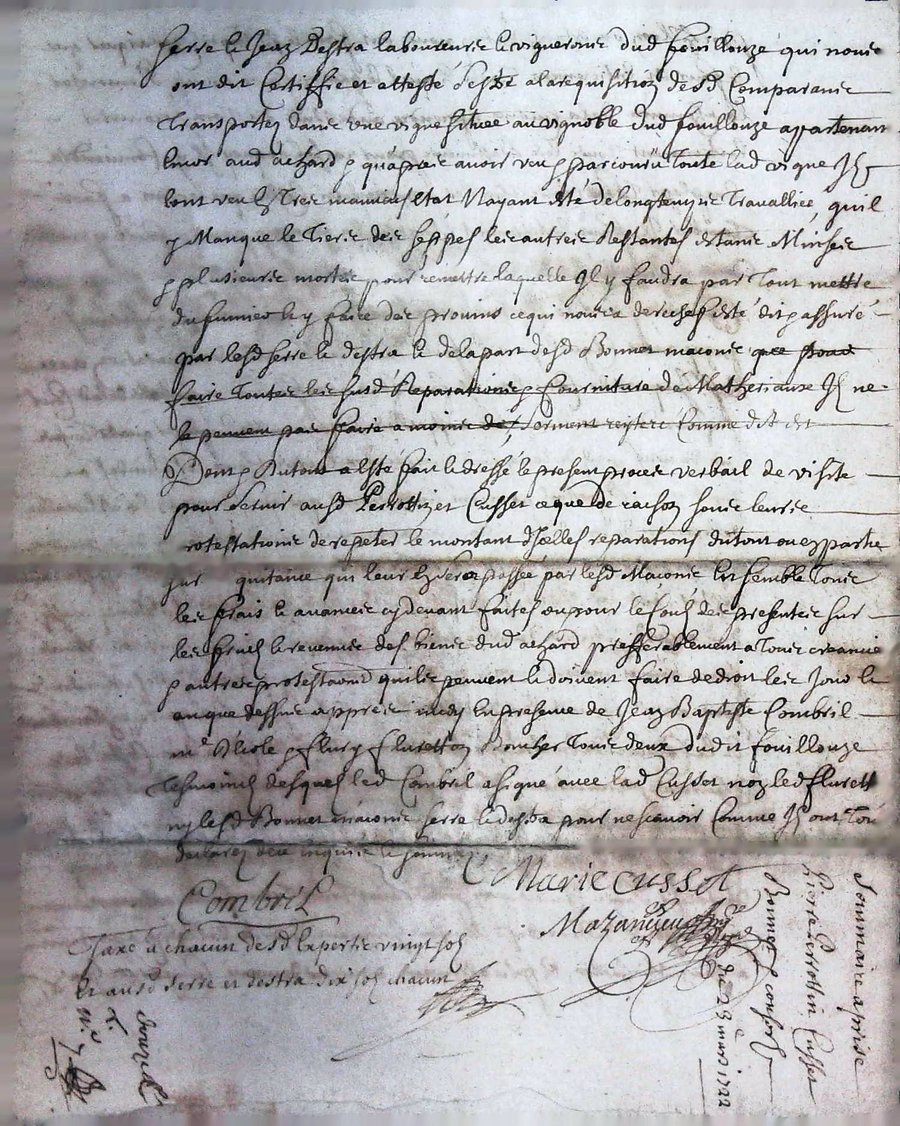 Serre & Jean Destra laboureurs & vignerons dud fouillouze qui nous
ont dit Certiffie et atteste s'estre a la requisition desd Comparans
Transportez dans une vigne scituee au vignoble dud fouillouze appartenant
aud achard & qu'apres avoir veu & parcouru toute lad vigne Ils
lont veu En Tres mauvais Estat Nayant esté de longtemps Travalliee, quil
y Manque le Tiers des seppes les autres Restantes estans
& plusieurs mortes pour remettre laquelle Il y faudra par Tout mettre
du fumier & y faire des provins ce qui nous a derechef esté dit & assuré
par lesd Serre & destra & de la part desd Bonnet macons que pour
faire Toutes les susd Reparations & fourniture de Matheriaux Ils ne
le peuvent pas faire a moins de, serment reytere Comme dit est
Dont & Dutout a Esté fait & dressé le present proces verbail de visite
pour servir ausd Perrottin et Cusset ce que de raison sous leurs
protestations de repeter le montant dicelles reparations du tout ou en partie
sur quitance qui leur En sera passée par lesd Macons Ensemble Tous
les frais & avances cy devant faites ou pour le des presentes sur
les fruits & revenus des biens dud achard prefferablement a Tous creanciers
& autres protestaons quils peuvent & doivent faire de droit les Jour &
an que dessus appres midy En presence de Jean Baptiste Combril
me & fleury fleuretton Tous deux dudit fouillouze
Tesmoins desquels led Combril a signé avec lad Cusset non led fleurett
ny lesd Bonnet macons Serre & destra pour ne scavoir Comme Ils ont
declarez de ce enquis & sommez
Marie cussot
Combril
Mazancieu
Taxé a chacun desd Experts vingt sols
Et ausd Serre et destra dix sols chacun
Sommaire aprise
Pierre Perrottin Cusset
Bonnet & consorts
du 23 mars 1722